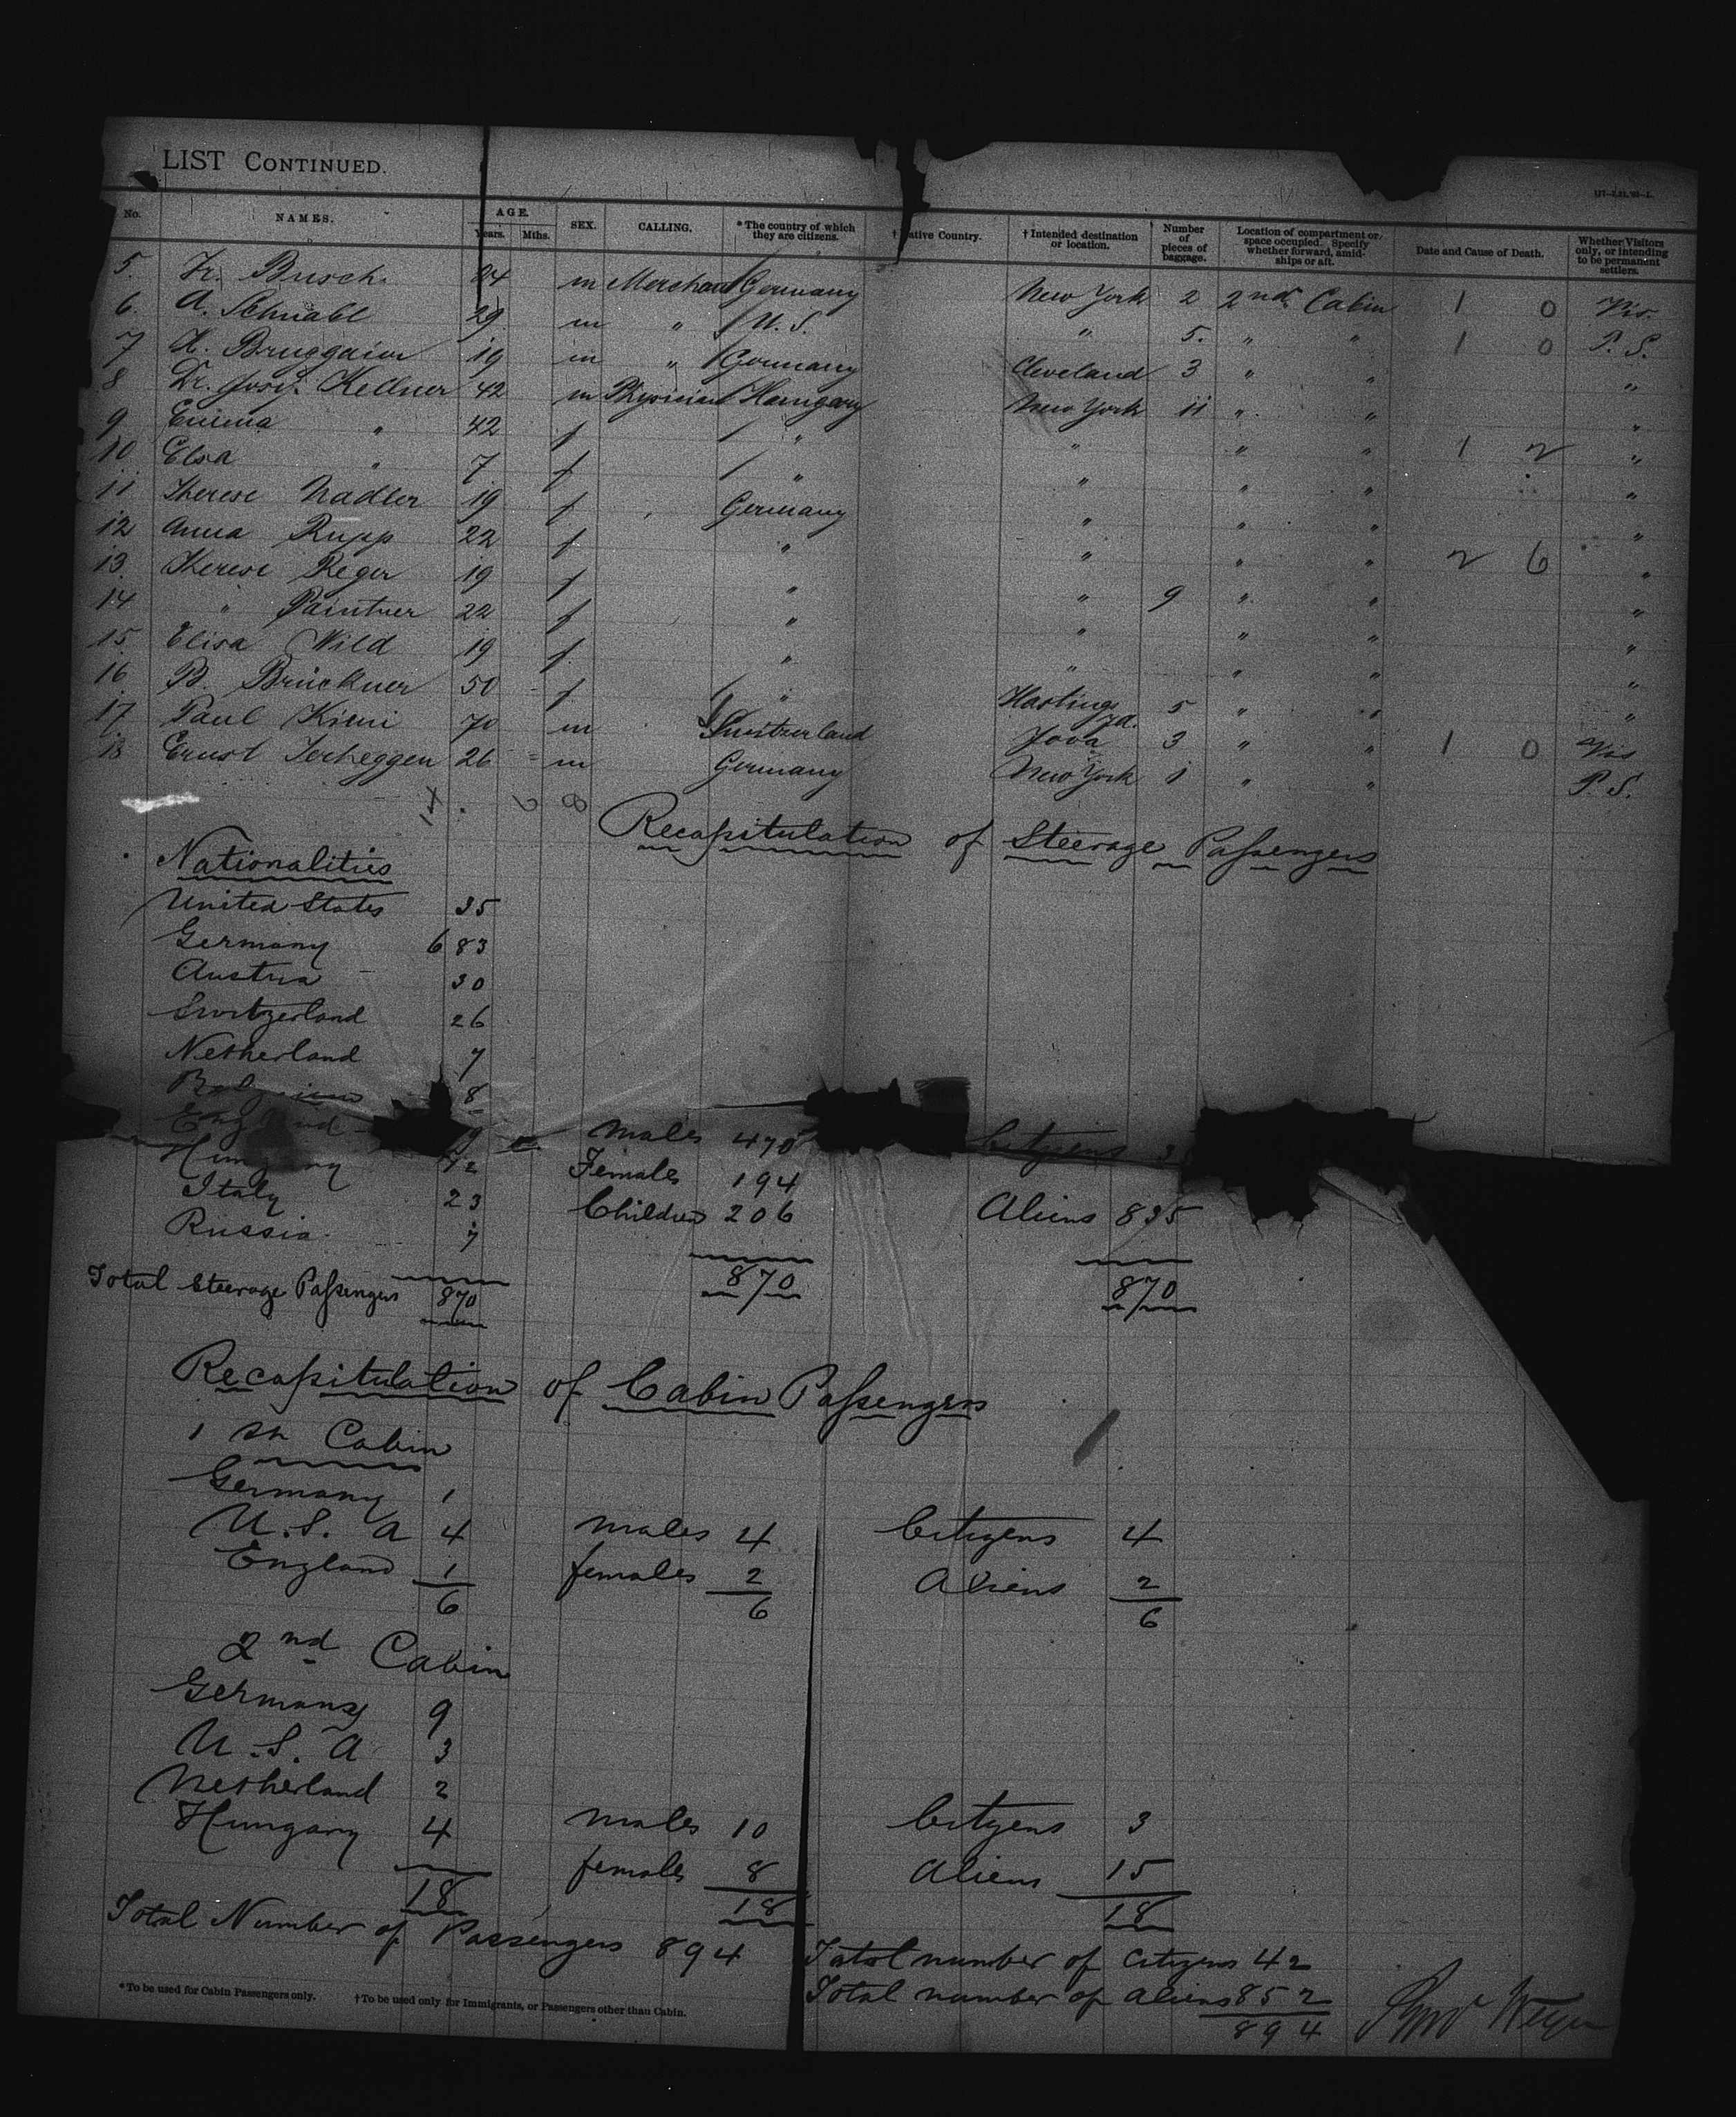 LIST CONTINUED.
No. NAMES. AGE. Years. Mths. SEX. CALLING. *The country of which they are citizens. †ative Country. †Intended destination or location. Number of pieces of baggage. Location of compartment or space occupied. Specify whether forward, amidships or aft. Date and Cause of Death. Whether Visitors only, or intending to be permanent settlers.
5. Fr. Busch 24 m Merchant Germany New York 2 2nd Cabin 1 0 Vis.
6. A. Schnabl 29 m " U. S. " 5. " " 1 0 P. S.
7 H. Bruggaier 19 m " Germany Cleveland 3 " " "
8 Dr. Josef Kellner 42 m Physician Hungary New York 11 " " "
9 Emma " 42 f " " " " 1 2 "
10 Elsa " 7 f " " " " "
11 Therese Nadler 19 f Germany " " " "
12 Anna Rupp 22 f " " " " 2 6 "
13. Therese Reger 19 f " " 9 " " "
14 " Paintner 22 f " " " " "
15. Elisa Wild 19 f. " " " " "
16 B. Brückner 50 f " Hastings 5 " " "
17. Paul Kieni 70 m Switzerland Iova 3 " " 1 0 Vis
18 Ernst Terheggen 26 m Germany New York 1 " " P. S.
6 8
Recapitulation of Steerage Passengers
Nationalities
United States 35
Germany 683
Austria 30
Switzerland 26
Netherland 7
Belgium 8
England males 470 Citizens
Hungary 42 Females 194
Italy 23 Children 206 Aliens 835
Russia 7
Total Steerage Passengers 870 870 870
Recapitulation of Cabin Passengers
1 st Cabin
Germany 1
U. S. A 4 males 4 Citizens 4
England 1 females 2 Aliens 2
6 6 6
2nd Cabin
Germany 9
U. S. A 3
Netherland 2
Hungary 4 males 10 Citzens 3
females 8 Aliens 15
18 18 18
Total Number of Passengers 894 Total number of Citizens 42
Total number of aliens 852
894
*To be used for Cabin Passengers only. †To be used only for Immigrants, or Passengers other than Cabin.